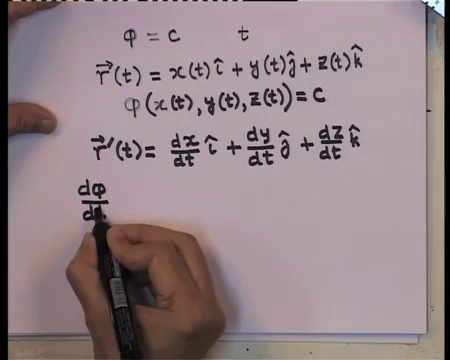 φ = c t
r⃗(t) = x(t) î + y(t) ĵ + z(t) k̂
φ(x(t), y(t), z(t)) = c
r⃗'(t) = dx/dt î + dy/dt ĵ + dz/dt k̂
dφ/d